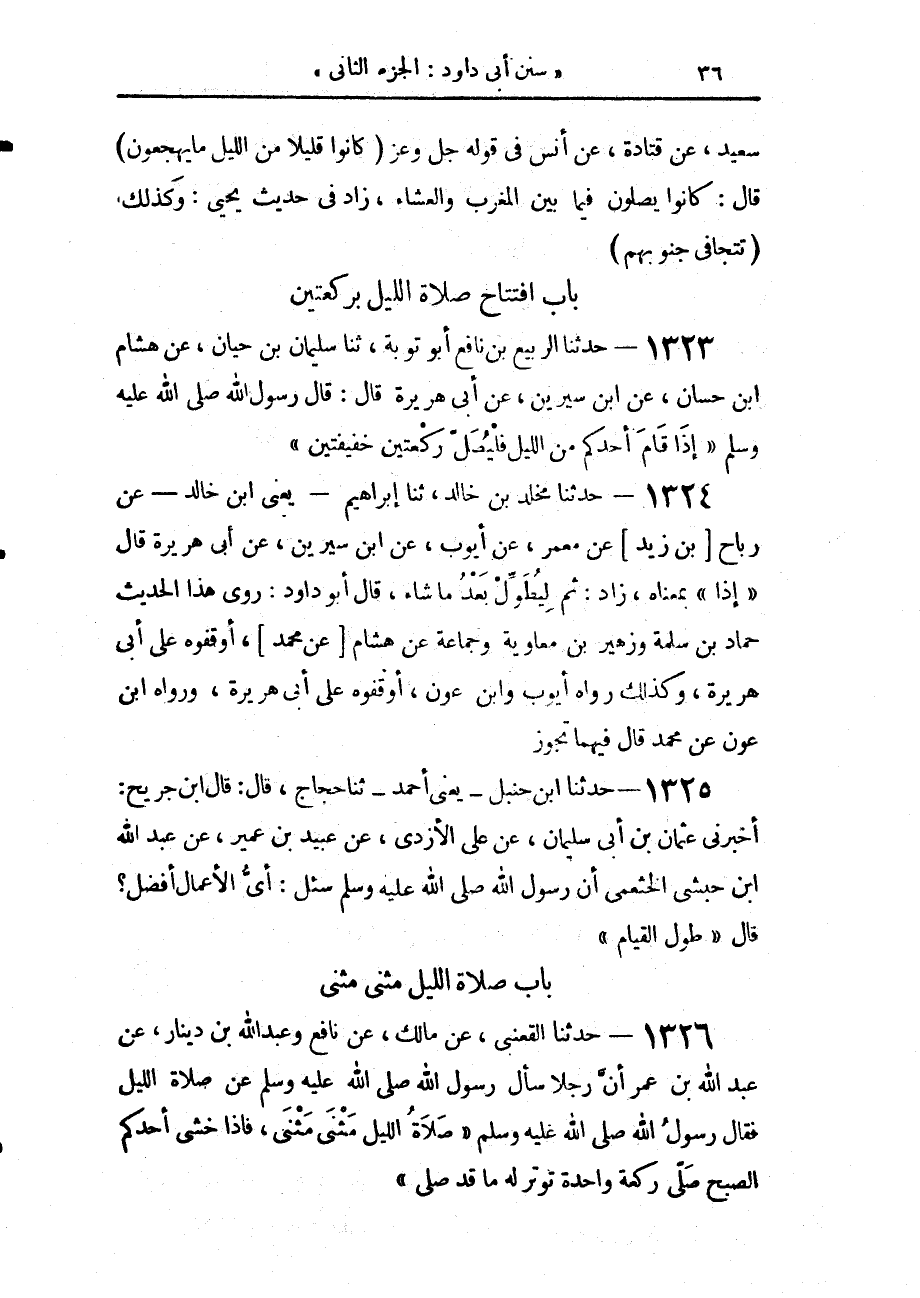 ٣٦ « سنن أبى داود : الجزء الثانى »
سعيد ، عن قتادة ، عن أنس فى قوله جل وعز ( كانوا قليلا من الليل مايهجعون )
قال : كانوا يصلون فيما بين المغرب والعشاء ، زاد فى حديث يحيى : وَكذلك
( تتجافى جنوبهم )
باب افتتاح صلاة الليل بركعتين
١٣٢٣ — حدثنا الربيع بن نافع أبو توبة ، ثنا سليمان بن حيان ، عن هشام
ابن حسان ، عن ابن سيرين ، عن أبى هريرة قال : قال رسول الله صلى الله عليه
وسلم « إذَا قَامَ أحدكم من الليل فلْيُصَلّ ركْعتين خفيفتين »
١٣٢٤ — حدثنا مخلد بن خالد ، ثنا إبراهيم — يعنى ابن خالد — عن
رباح [ بن زيد ] عن معمر ، عن أيوب ، عن ابن سيرين ، عن أبى هريرة قال
« إذا » بمعناه ، زاد : ثم لِيُطَوِّلْ بَعْدُ ما شاء ، قال أبو داود : روى هذا الحديث
حماد بن سلمة وزهير بن معاوية وجماعة عن هشام [ عن محمد ] ، أوقفوه على أبى
هريرة ، وكذلك رواه أيوب وابن عون ، أوقفوه على أبى هريرة ، ورواه ابن
عون عن محمد قال فيهما تجوز
١٣٢٥ — حدثنا ابن حنبل ـ يعنى أحمد ـ ثنا حجاج ، قال : قال ابن جريج :
أخبرنى عثمان بن أبى سليمان ، عن على الأزدى ، عن عبيد بن عمير ، عن عبد الله
ابن حبشى الخثعمى أن رسول الله صلى الله عليه وسلم سئل : أىُّ الأعمال أفضل ؟
قال « طول القيام »
باب صلاة الليل مثنى مثنى
١٣٢٦ — حدثنا القعنبى ، عن مالك ، عن نافع وعبد الله بن دينار ، عن
عبد الله بن عمر أنَّ رجلا سأل رسول الله صلى الله عليه وسلم عن صلاة الليل
فقال رسولُ الله صلى الله عليه وسلم « صَلاَةُ الليل مَثْنَى مَثْنَى ، فاذا خشى أحدكم
الصبح صَلّى ركعة واحدة توتر له ما قد صلى »